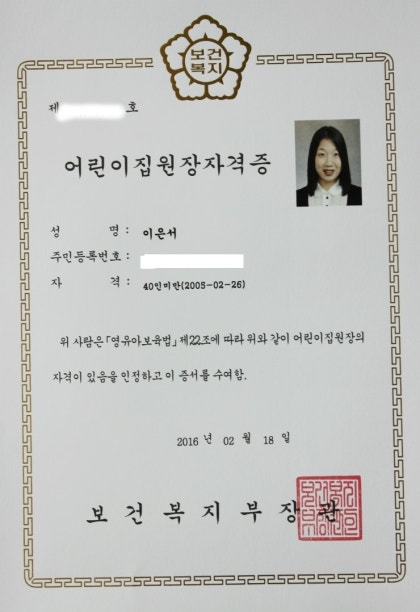 보건
복지
제 호
어린이집원장자격증
성 명 : 이은서
주민등록번호 :
자 격 : 40인미만(2005-02-26)
위 사람은「영유아보육법」제22조에 따라 위와 같이 어린이집원장의
자격이 있음을 인정하고 이 증서를 수여함.
2016 년 02 월 18 일
보건복지부장관